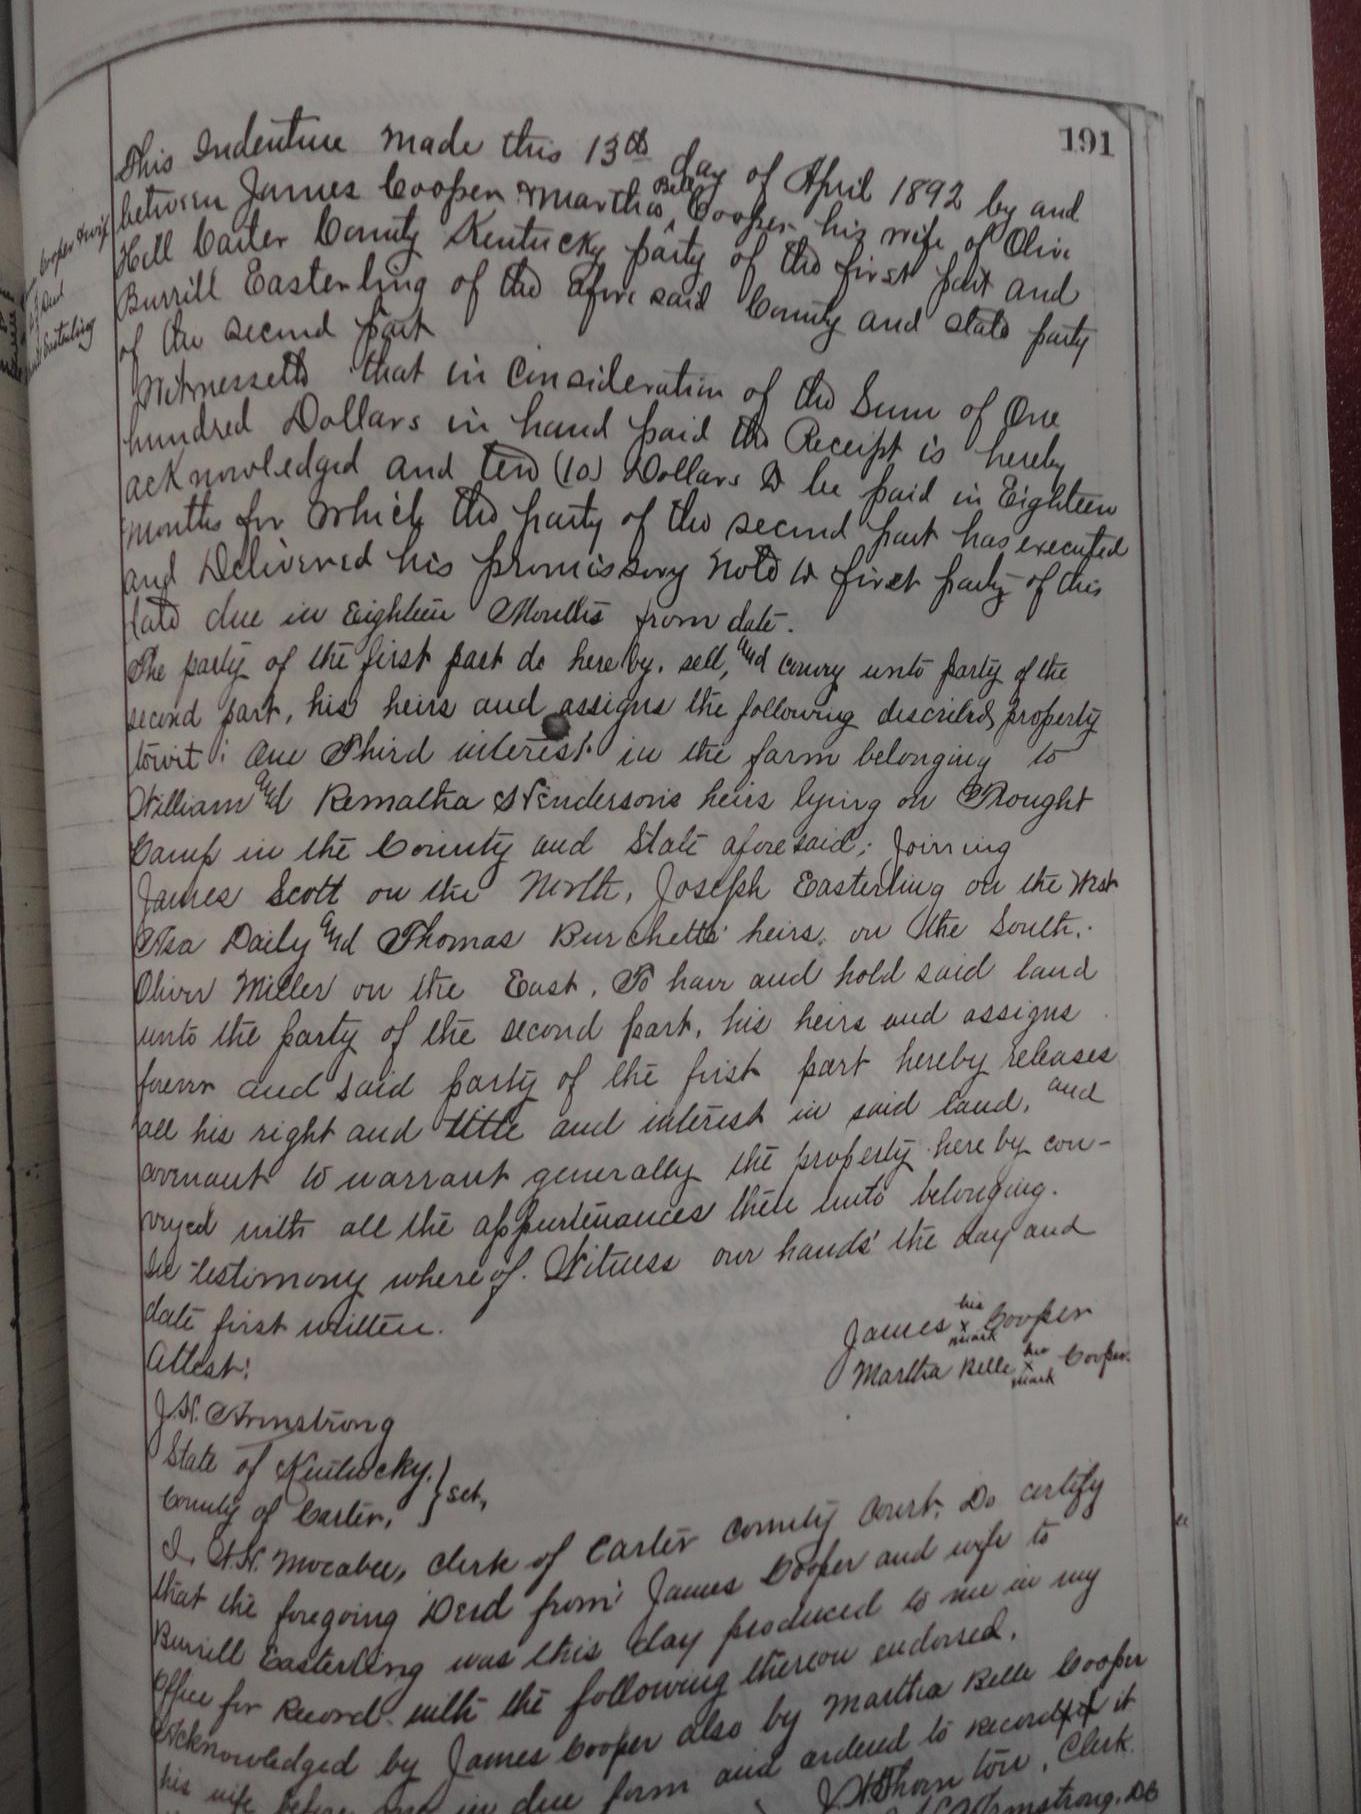 191
Cooper & wife
Deed
Easterling
This Indenture made this 13th day of April 1892 by and
between James Cooper & Martha Bell Cooper his wife of Olive
Hill Carter County Kentucky party of the first part and
Burrill Easterling of the afore said County and state party
of the second part
Witnesseth that in consideration of the Sum of One
hundred Dollars in hand paid the Receipt is hereby
acknowledged and ten (10) Dollars to be paid in Eighteen
months for which the party of the second part has executed
and Delivered his promissory note to first party of this
date due in Eighteen Months from date.
The party of the first part do here by, sell, and convey unto party of the
second part, his heirs and assigns the following described property
towit: One Third interest in the farm belonging to
William and Remaltha Henderson's heirs lying on Trought
Camp in the County and State aforesaid; Joining
James Scott on the North, Joseph Easterling on the West
Asa Daily and Thomas Burchetts' heirs, on the South,
Oliver Miller on the East. To have and hold said land
unto the party of the second part, his heirs and assigns
forever and said party of the first part hereby releases
all his right and title and interest in said land, and
covenant to warrant generally the property here by con-
veyed with all the appurtenances there unto belonging.
In testimony where of. Witness our hands the day and
date first written.
James his x mark Cooper
Martha Belle her x mark Cooper.
Attest:
J.H. Armstrong
State of Kentucky,
County of Carter, } sct,
I, W.H. Mocabee, Clerk of Carter County Court, Do certify
that the foregoing Deed from James Cooper and wife to
Burrill Easterling was this day produced to me in my
office for Record with the following thereon endorsed.
Acknowledged by James Cooper also by Martha Belle Cooper
his wife before me in due form and ordered to record it
Thornton, Clerk.
Armstrong, DC